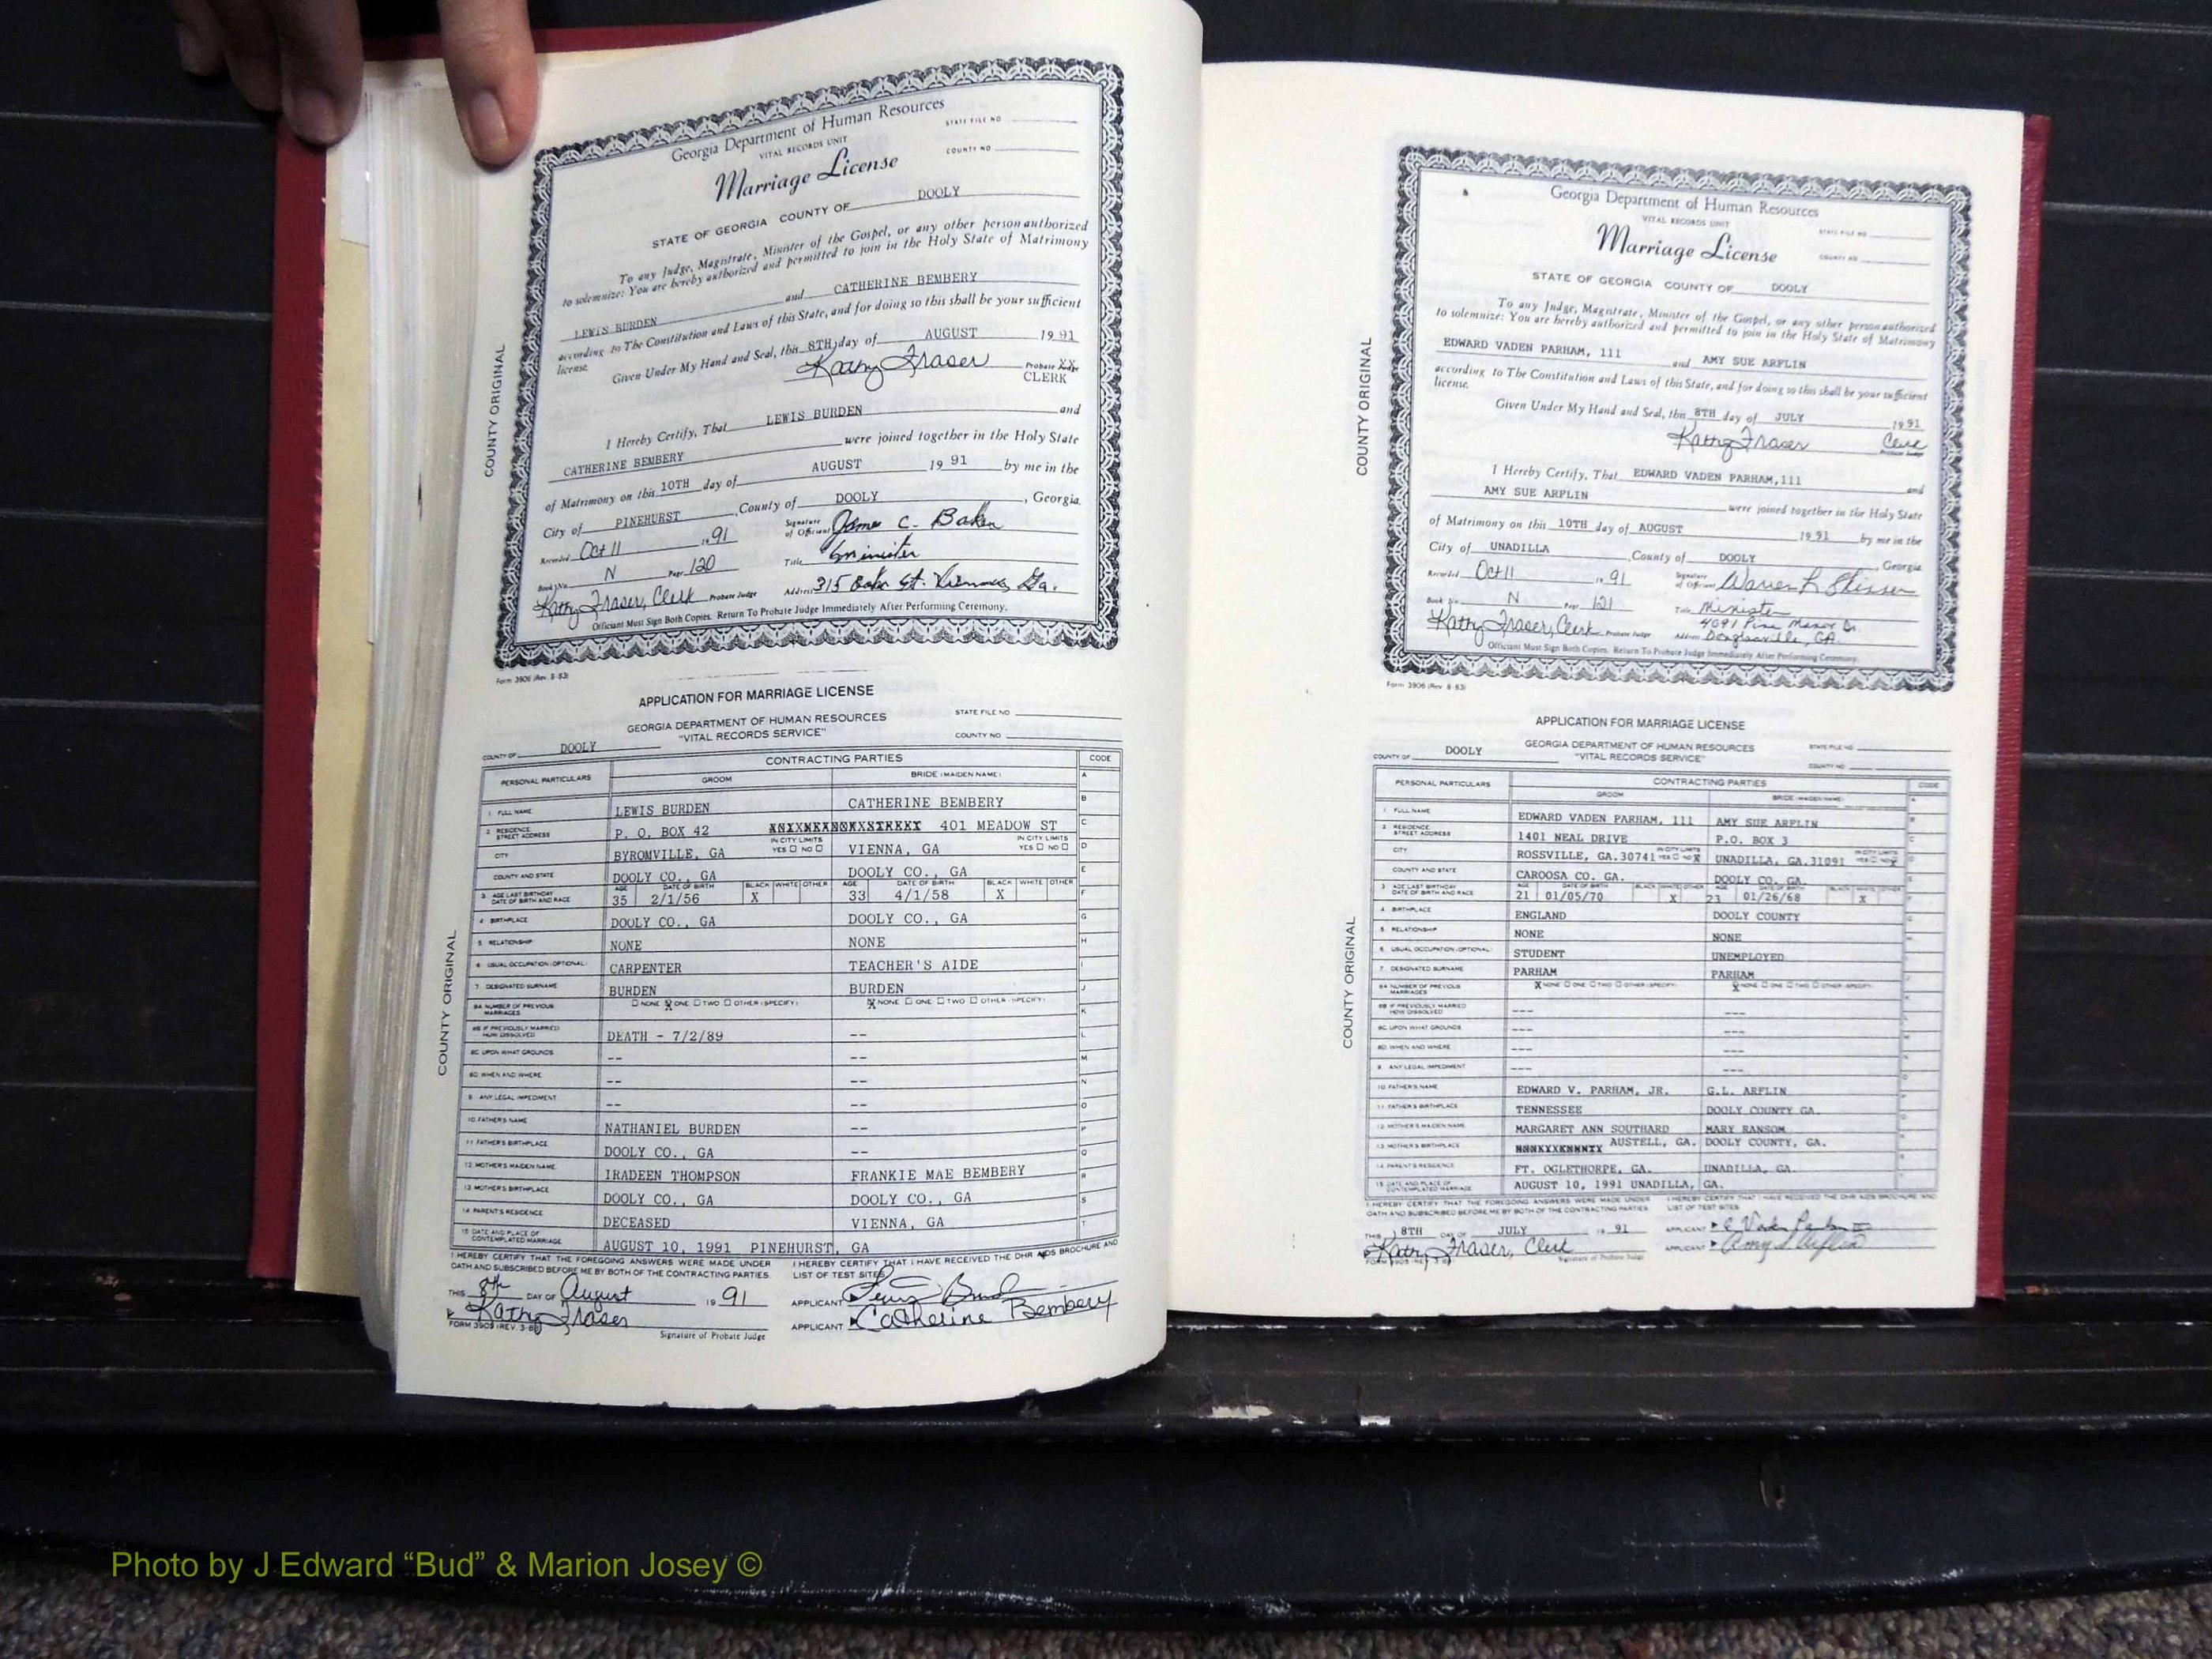 Georgia Department of Human Resources
VITAL RECORDS UNIT
STATE FILE NO
Marriage License
COUNTY NO
STATE OF GEORGIA COUNTY OF DOOLY
To any Judge, Magistrate, Minister of the Gospel, or any other person authorized
to solemnize: You are hereby authorized and permitted to join in the Holy State of Matrimony
LEWIS BURDEN and CATHERINE BEMBERY
according to The Constitution and Laws of this State, and for doing so this shall be your sufficient
license.
Given Under My Hand and Seal, this 8TH day of AUGUST 19 91
Kathy Fraser Probate Judge
CLERK
I Hereby Certify, That LEWIS BURDEN and
CATHERINE BEMBERY were joined together in the Holy State
of Matrimony on this 10TH day of AUGUST 19 91 by me in the
City of PINEHURST, County of DOOLY, Georgia.
Recorded Oct 11 19 91 Signature of Official James C. Baker
Book No. N Page 120 Title minister
Kathy Fraser, Clerk Probate Judge Address 315 St. Ga.
Officiant Must Sign Both Copies. Return To Probate Judge Immediately After Performing Ceremony.
COUNTY ORIGINAL
Form 3906 (Rev. 8-83)
APPLICATION FOR MARRIAGE LICENSE
GEORGIA DEPARTMENT OF HUMAN RESOURCES STATE FILE NO
"VITAL RECORDS SERVICE" COUNTY NO
COUNTY OF DOOLY
PERSONAL PARTICULARS CONTRACTING PARTIES CODE
GROOM BRIDE (MAIDEN NAME) A
1. FULL NAME LEWIS BURDEN CATHERINE BEMBERY B
2. RESIDENCE STREET ADDRESS P. O. BOX 42 401 MEADOW ST C
CITY BYROMVILLE, GA IN CITY LIMITS YES NO VIENNA, GA IN CITY LIMITS YES NO D
COUNTY AND STATE DOOLY CO., GA DOOLY CO., GA E
3. AGE LAST BIRTHDAY DATE OF BIRTH AND RACE AGE 35 DATE OF BIRTH 2/1/56 BLACK X WHITE OTHER AGE 33 DATE OF BIRTH 4/1/58 BLACK X WHITE OTHER F
4. BIRTHPLACE DOOLY CO., GA DOOLY CO., GA G
5. RELATIONSHIP NONE NONE H
6. USUAL OCCUPATION (OPTIONAL) CARPENTER TEACHER'S AIDE I
7. DESIGNATED SURNAME BURDEN BURDEN J
8A. NUMBER OF PREVIOUS MARRIAGES NONE X ONE TWO OTHER (SPECIFY) X NONE ONE TWO OTHER (SPECIFY) K
8B. IF PREVIOUSLY MARRIED HOW DISSOLVED DEATH - 7/2/89 -- L
8C. UPON WHAT GROUNDS -- -- M
8D. WHEN AND WHERE -- -- N
9. ANY LEGAL IMPEDIMENT -- -- O
10. FATHER'S NAME NATHANIEL BURDEN -- P
11. FATHER'S BIRTHPLACE DOOLY CO., GA -- Q
12. MOTHER'S MAIDEN NAME IRADEEN THOMPSON FRANKIE MAE BEMBERY R
13. MOTHER'S BIRTHPLACE DOOLY CO., GA DOOLY CO., GA S
14. PARENT'S RESIDENCE DECEASED VIENNA, GA T
15. DATE AND PLACE OF CONTEMPLATED MARRIAGE AUGUST 10, 1991 PINEHURST, GA
I HEREBY CERTIFY THAT THE FOREGOING ANSWERS WERE MADE UNDER I HEREBY CERTIFY THAT I HAVE RECEIVED THE DHR AIDS BROCHURE AND
OATH AND SUBSCRIBED BEFORE ME BY BOTH OF THE CONTRACTING PARTIES. LIST OF TEST SITES
THIS 8th DAY OF August 19 91 APPLICANT
Kathy Fraser APPLICANT Catherine Bembery
FORM 3905 (REV. 3-88) Signature of Probate Judge
COUNTY ORIGINAL
Georgia Department of Human Resources
VITAL RECORDS UNIT
STATE FILE NO
Marriage License
COUNTY NO
STATE OF GEORGIA COUNTY OF DOOLY
To any Judge, Magistrate, Minister of the Gospel, or any other person authorized
to solemnize: You are hereby authorized and permitted to join in the Holy State of Matrimony
EDWARD VADEN PARHAM, 111 and AMY SUE ARFLIN
according to The Constitution and Laws of this State, and for doing so this shall be your sufficient
license.
Given Under My Hand and Seal, this 8TH day of JULY 19 91
Kathy Fraser Clerk
Probate Judge
I Hereby Certify, That EDWARD VADEN PARHAM,111 and
AMY SUE ARFLIN were joined together in the Holy State
of Matrimony on this 10TH day of AUGUST 19 91 by me in the
City of UNADILLA, County of DOOLY, Georgia
Recorded Oct 11 19 91 Signature of Official Warren L
Book No. N Page 121 Title Minister
4091 Pine Manor Dr.
Kathy Fraser, Clerk Probate Judge Address Douglasville, GA.
Officiant Must Sign Both Copies. Return To Probate Judge Immediately After Performing Ceremony.
COUNTY ORIGINAL
Form 3906 (Rev. 8-83)
APPLICATION FOR MARRIAGE LICENSE
GEORGIA DEPARTMENT OF HUMAN RESOURCES STATE FILE NO
"VITAL RECORDS SERVICE" COUNTY NO
COUNTY OF DOOLY
PERSONAL PARTICULARS CONTRACTING PARTIES CODE
GROOM BRIDE (MAIDEN NAME)
1. FULL NAME EDWARD VADEN PARHAM, 111 AMY SUE ARFLIN
2. RESIDENCE STREET ADDRESS 1401 NEAL DRIVE P.O. BOX 3
CITY ROSSVILLE, GA.30741 IN CITY LIMITS YES NO X UNADILLA, GA.31091 IN CITY LIMITS YES NO
COUNTY AND STATE CAROOSA CO. GA. DOOLY CO. GA.
3. AGE LAST BIRTHDAY DATE OF BIRTH AND RACE AGE 21 DATE OF BIRTH 01/05/70 BLACK WHITE X OTHER AGE 23 DATE OF BIRTH 01/26/68 BLACK WHITE X OTHER
4. BIRTHPLACE ENGLAND DOOLY COUNTY
5. RELATIONSHIP NONE NONE
6. USUAL OCCUPATION (OPTIONAL) STUDENT UNEMPLOYED
7. DESIGNATED SURNAME PARHAM PARHAM
8A. NUMBER OF PREVIOUS MARRIAGES X NONE ONE TWO OTHER (SPECIFY) X NONE ONE TWO OTHER (SPECIFY)
8B. IF PREVIOUSLY MARRIED HOW DISSOLVED --- ---
8C. UPON WHAT GROUNDS --- ---
8D. WHEN AND WHERE --- ---
9. ANY LEGAL IMPEDIMENT --- ---
10. FATHER'S NAME EDWARD V. PARHAM, JR. G.L. ARFLIN
11. FATHER'S BIRTHPLACE TENNESSEE DOOLY COUNTY GA.
12. MOTHER'S MAIDEN NAME MARGARET ANN SOUTHARD MARY RANSOM
13. MOTHER'S BIRTHPLACE AUSTELL, GA. DOOLY COUNTY, GA.
14. PARENT'S RESIDENCE FT. OGLETHORPE, GA. UNADILLA, GA.
15. DATE AND PLACE OF CONTEMPLATED MARRIAGE AUGUST 10, 1991 UNADILLA, GA.
I HEREBY CERTIFY THAT THE FOREGOING ANSWERS WERE MADE UNDER I HEREBY CERTIFY THAT I HAVE RECEIVED THE DHR AIDS BROCHURE AND
OATH AND SUBSCRIBED BEFORE ME BY BOTH OF THE CONTRACTING PARTIES LIST OF TEST SITES
THIS 8TH DAY OF JULY 19 91 APPLICANT E. Vaden Parham III
Kathy Fraser, Clerk APPLICANT Amy S Arflin
Signature of Probate Judge
COUNTY ORIGINAL
Photo by J Edward “Bud” & Marion Josey ©